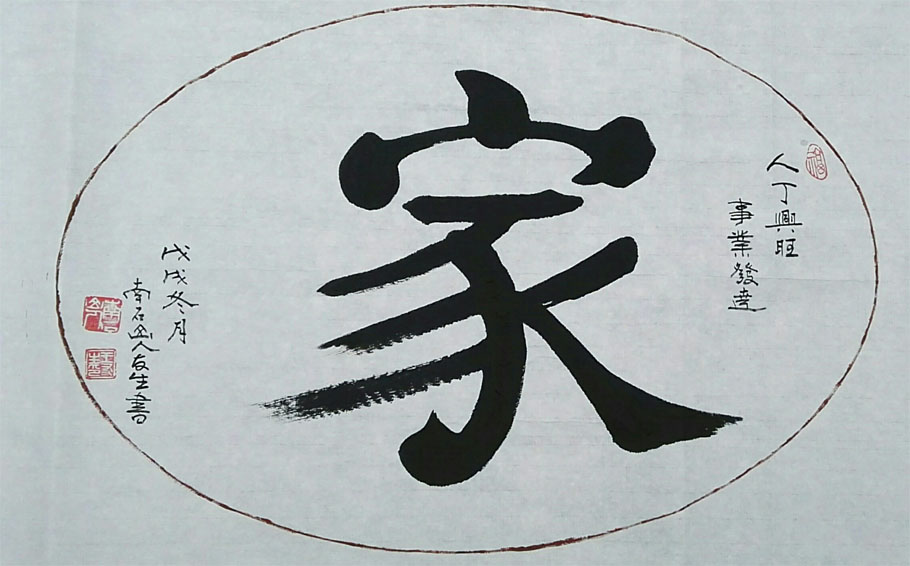 家
人丁興旺
事業發達
戊戌冬月
南石山人友生書